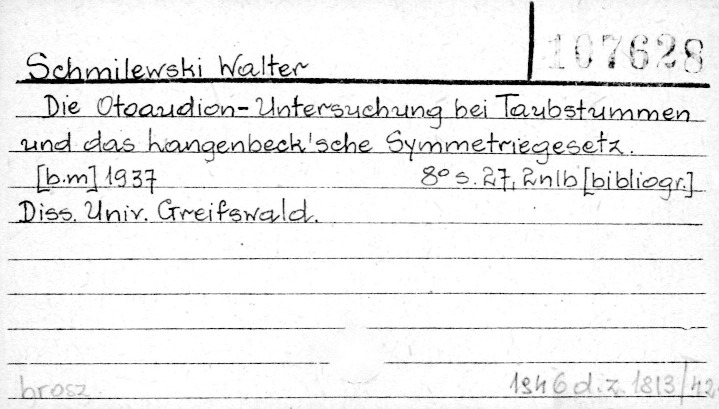 107628
Schmilewski Walter
Die Otoaudion-Untersuchung bei Taubstummen
und das Langenbeck'sche Symmetriegesetz.
[b.m] 1937 8° s. 27, 2nlb [bibliogr.]
Diss. Univ. Greifswald.
brosz. 1946 d.z. 1813/42